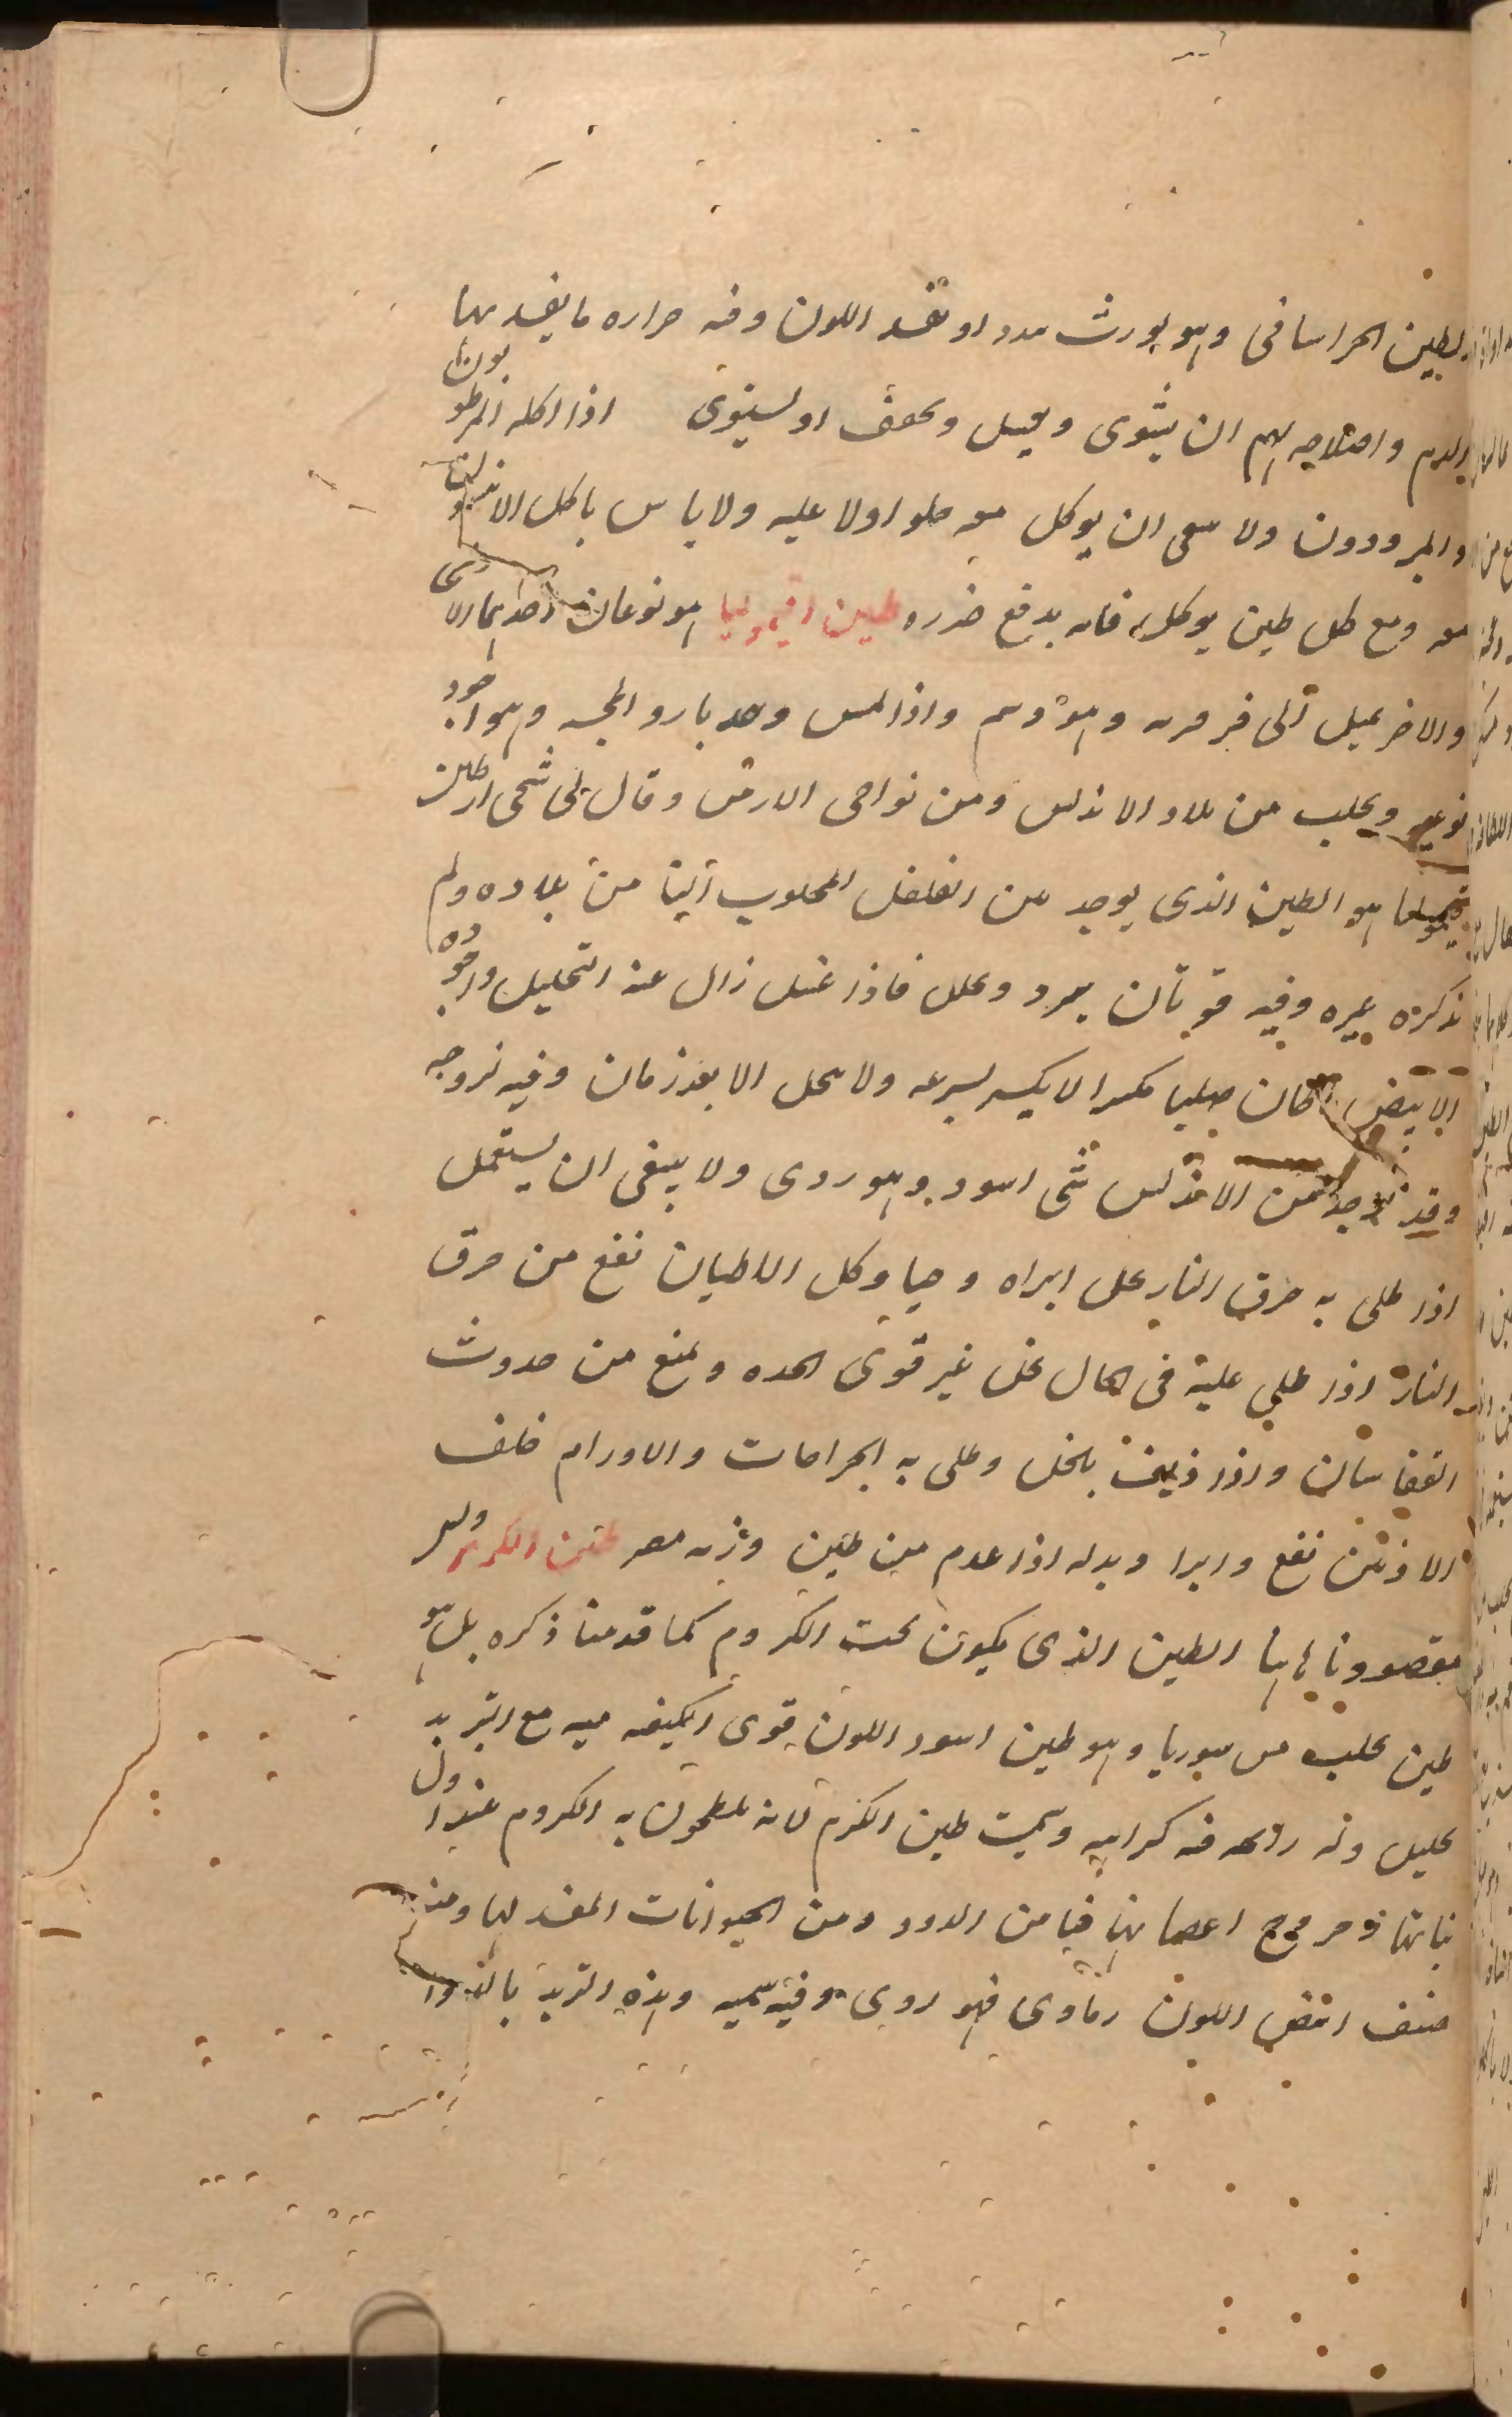 الطين الخراسانى وهو يورث سددا ويفسد اللون وفيه حراره ما يفسد بها
الدم واصلاحه لهم ان يشوى ويغسل ويجفف او يستوى اذا اكله المرطوبون
والمبرودون ولا ينبغى ان يوكل معه حلوا ولا عليه ولا باس باكل الانيسون
معه ومع كل طين يوكل فانه يدفع ضرره طين قيموليا هو نوعان احدهما
والاخر يميل الى فرفريه وهو دسم واذا لمس وجد بارد المجسه وهو اجود
نوعيه ويجلب من بلاد الاندلس ومن نواحى الارمن وقال لى شيخى ان طين
قيموليا هو الطين الذى يوجد بين الفلفل المجلوب الينا من بلاده ولم
يذكره غيره وفيه قوتان يبرد ويحلل فاذا غسل زال عنه التحليل واجوده
الابيض كان صلبا مكسرا لا يكسر بسرعه ولا يحل الا بعد زمان وفيه لزوجه
وقد يوجد من الاندلس شى اسود وهو ردى ولا ينبغى ان يستعمل
اذا طلى به حرق النار بخل ابراه وحيا وكل الاطيان نفع من حرق
النار اذا طلى عليه فى الحال بخل غير قوى الحده ويمنع من حدوث
النفاخات واذا ذيف بالخل وطلى به الجراحات والاورام خلف
الاذنين نفع وابرا وبدله اذا عدم من طين وزنه مصر طين الكرم وليس
مقصودنا هاهنا الطين الذى يكون تحت الكروم كما قدمنا ذكره بل هو
طين يجلب من سوريا وهو طين اسود اللون قوى الكيفيه فيه مع التبريد
تحليل وله رائحه فيه كراهيه وسميت طين الكرم لانه يلطخون به الكروم عند اول
نباتها وخروج اغصانها فيامن الدود ومن الحيوانات المفسد لها ومنه
صنف ابيض اللون رمادى فهو ردى وفيه سميه وهذه التربه